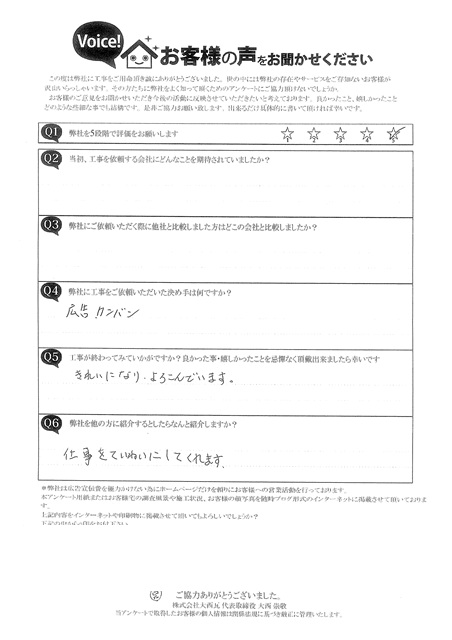 Voice!
お客様の声をお聞かせください
この度は弊社に工事をご用命頂き誠にありがとうございました。世の中には弊社の存在やサービスをご存知ないお客様が
沢山いらっしゃいます。その方たちに弊社をよく知って頂くためのアンケートにご協力頂けないでしょうか。
お客様のご意見をお聞かせいただき今後の活動に反映させていただきたいと考えております。良かったこと、嬉しかったこと
どのような些細な事でも結構です。是非ご協力お願い致します。出来るだけ具体的に書いて頂ければ幸いです。
Q1 弊社を5段階で評価をお願いします
Q2 当初、工事を依頼する会社にどんなことを期待されていましたか？
Q3 弊社にご依頼いただく際に他社と比較しました方はどこの会社と比較しましたか？
Q4 弊社に工事をご依頼いただいた決め手は何ですか？
広告カンバン
Q5 工事が終わってみていかがですか？良かった事・嬉しかったことを忌憚なく頂戴出来ましたら幸いです
きれいになり、よろこんでいます。
Q6 弊社を他の方に紹介するとしたらなんと紹介しますか？
仕事をていねいにしてくれます。
＊弊社は広告宣伝費を極力かけない為にホームページだけを頼りにお客様への営業活動を行っております。
本アンケート用紙またはお客様宅の調査風景や施工状況、お客様の顔写真を随時ブログ形式のインターネットに掲載させて頂いておりま
す。
上記内容をインターネットや印刷物に掲載させて頂いてもよろしいでしょうか？
ご協力ありがとうございました。
株式会社大西瓦 代表取締役 大西 崇敬
当アンケートで取得したお客様の個人情報は関係法規に基づき厳正に管理いたします。